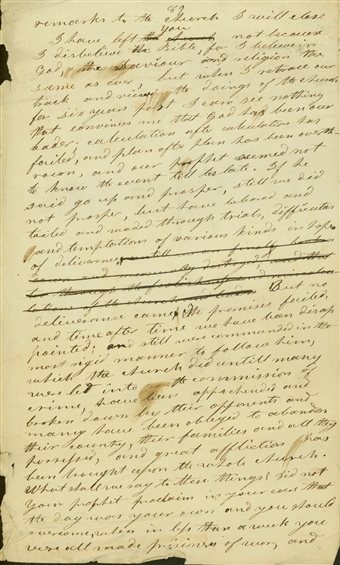 89
remarks to the church I will close
I have left you not because
I disbelieve the Bible, for I believe in
God, the Saviour and religion the
same as ever but when I retrace our
track and view the doings of the church
for six years past I can see nothing
that convinces me that God has been our
leader. calculation after calculation has
failed, and plan after plan has been overth-
rown, and our prophet seemed not
to know the event till too late. If he
said go up and prosper, still we did
not prosper, but have labored and
toiled and waded through trials, difficulties
and temptations of various kinds in hope
of deliverance,
But no
deliverance came, the promises failed,
and time after time we have been disap
pointed; and still were commanded in the
most rigid manner to follow him,
which the church did untill many
were led into the commission of
crime, have been apprehended and
broken down by their opponents and
many have been obleged to abandon
their country, their families and all they
possessed, and great affliction has
been brought upon the whole church.
What shall we say to these things? did not
your prophet proclaim in your ears that
the day was your own and you should
overcome, when in less than a week you
were all made prisoners of war, and